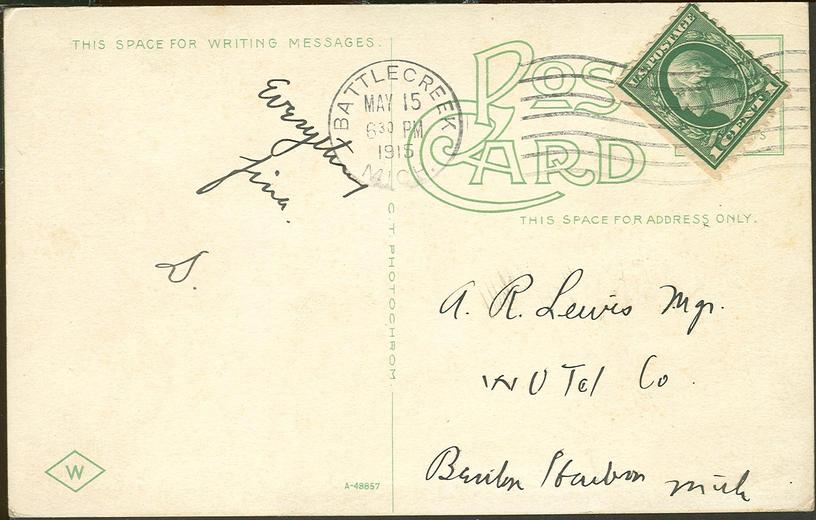 THIS SPACE FOR WRITING MESSAGES.
Everything
fine.
S.
W
A-48857
C.T. PHOTOCHROM
BATTLE CREEK
MAY 15
6 30 PM
1915
MICH.
POST
CARD
U.S. POSTAGE
1 CENT 1
THIS SPACE FOR ADDRESS ONLY.
A. R. Lewis Mgr.
W U Tel Co.
Benton Harbor Mich